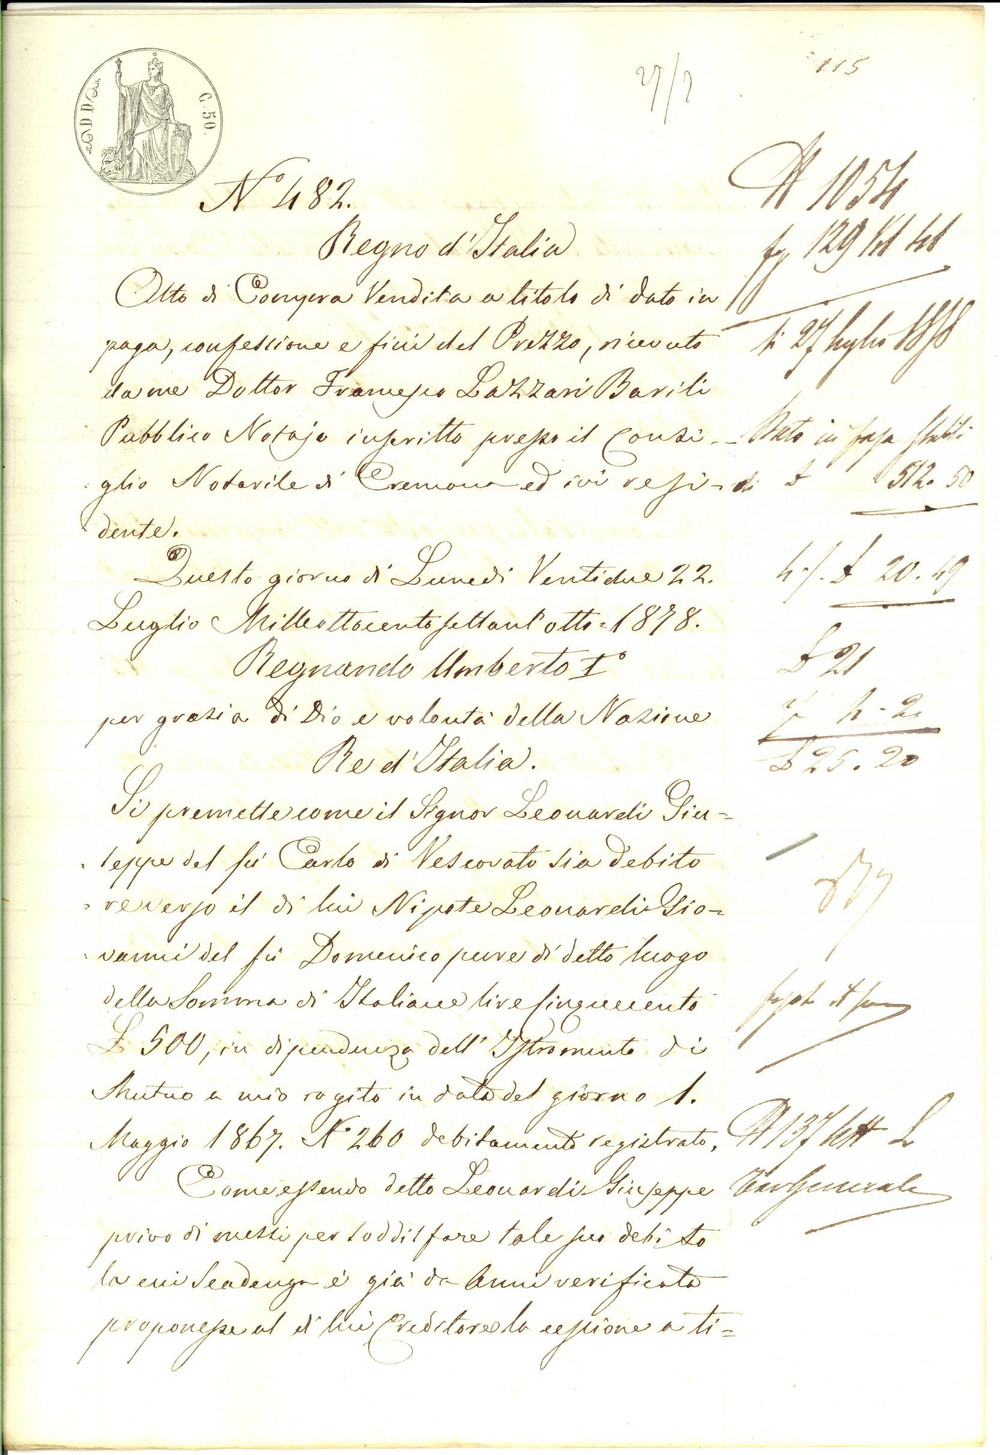 115
27/7
C. 50.
N° 482.
Regno d'Italia
Atto di Compra Vendita a titolo di dato in
paga, confessione e fini del Prezzo, ricevuto
da me Dottor Francesco Lazzari Barili
Pubblico Notajo inscritto presso il Consi-
glio Notarile di Cremona ed ivi resi-
dente.
Questo giorno di Lunedì Ventidue 22.
Luglio Milleottocentosettant'otto = 1878.
Regnando Umberto I°
per grazia di Dio e volontà della Nazione
Re d'Italia.
Si premette come il Signor Leonardi Giu=
seppe del fu Carlo di Vescovato sia debito
re verso il di lui Nipote Leonardi Gio=
vanni del fu Domenico pure di detto luogo
della Somma di Italiane lire cinquecento
£ 500, in dipendenza dell'Istromento di
Mutuo a mio rogito in data del giorno 1.
Maggio 1867. N° 260 debitamente registrato.
Come essendo detto Leonardi Giuseppe
privo di mezzi per soddisfare tale suo debito
la cui Scadenza è già da Anni verificata
proponesse al di lui Creditore la cessione a ti=
N 1054
fg 129
li 27 luglio 1878
Dato in paga stabili
di £ 512.50
4 % £ 20.49
£ 21
4 - 20
£ 25.20
N 137